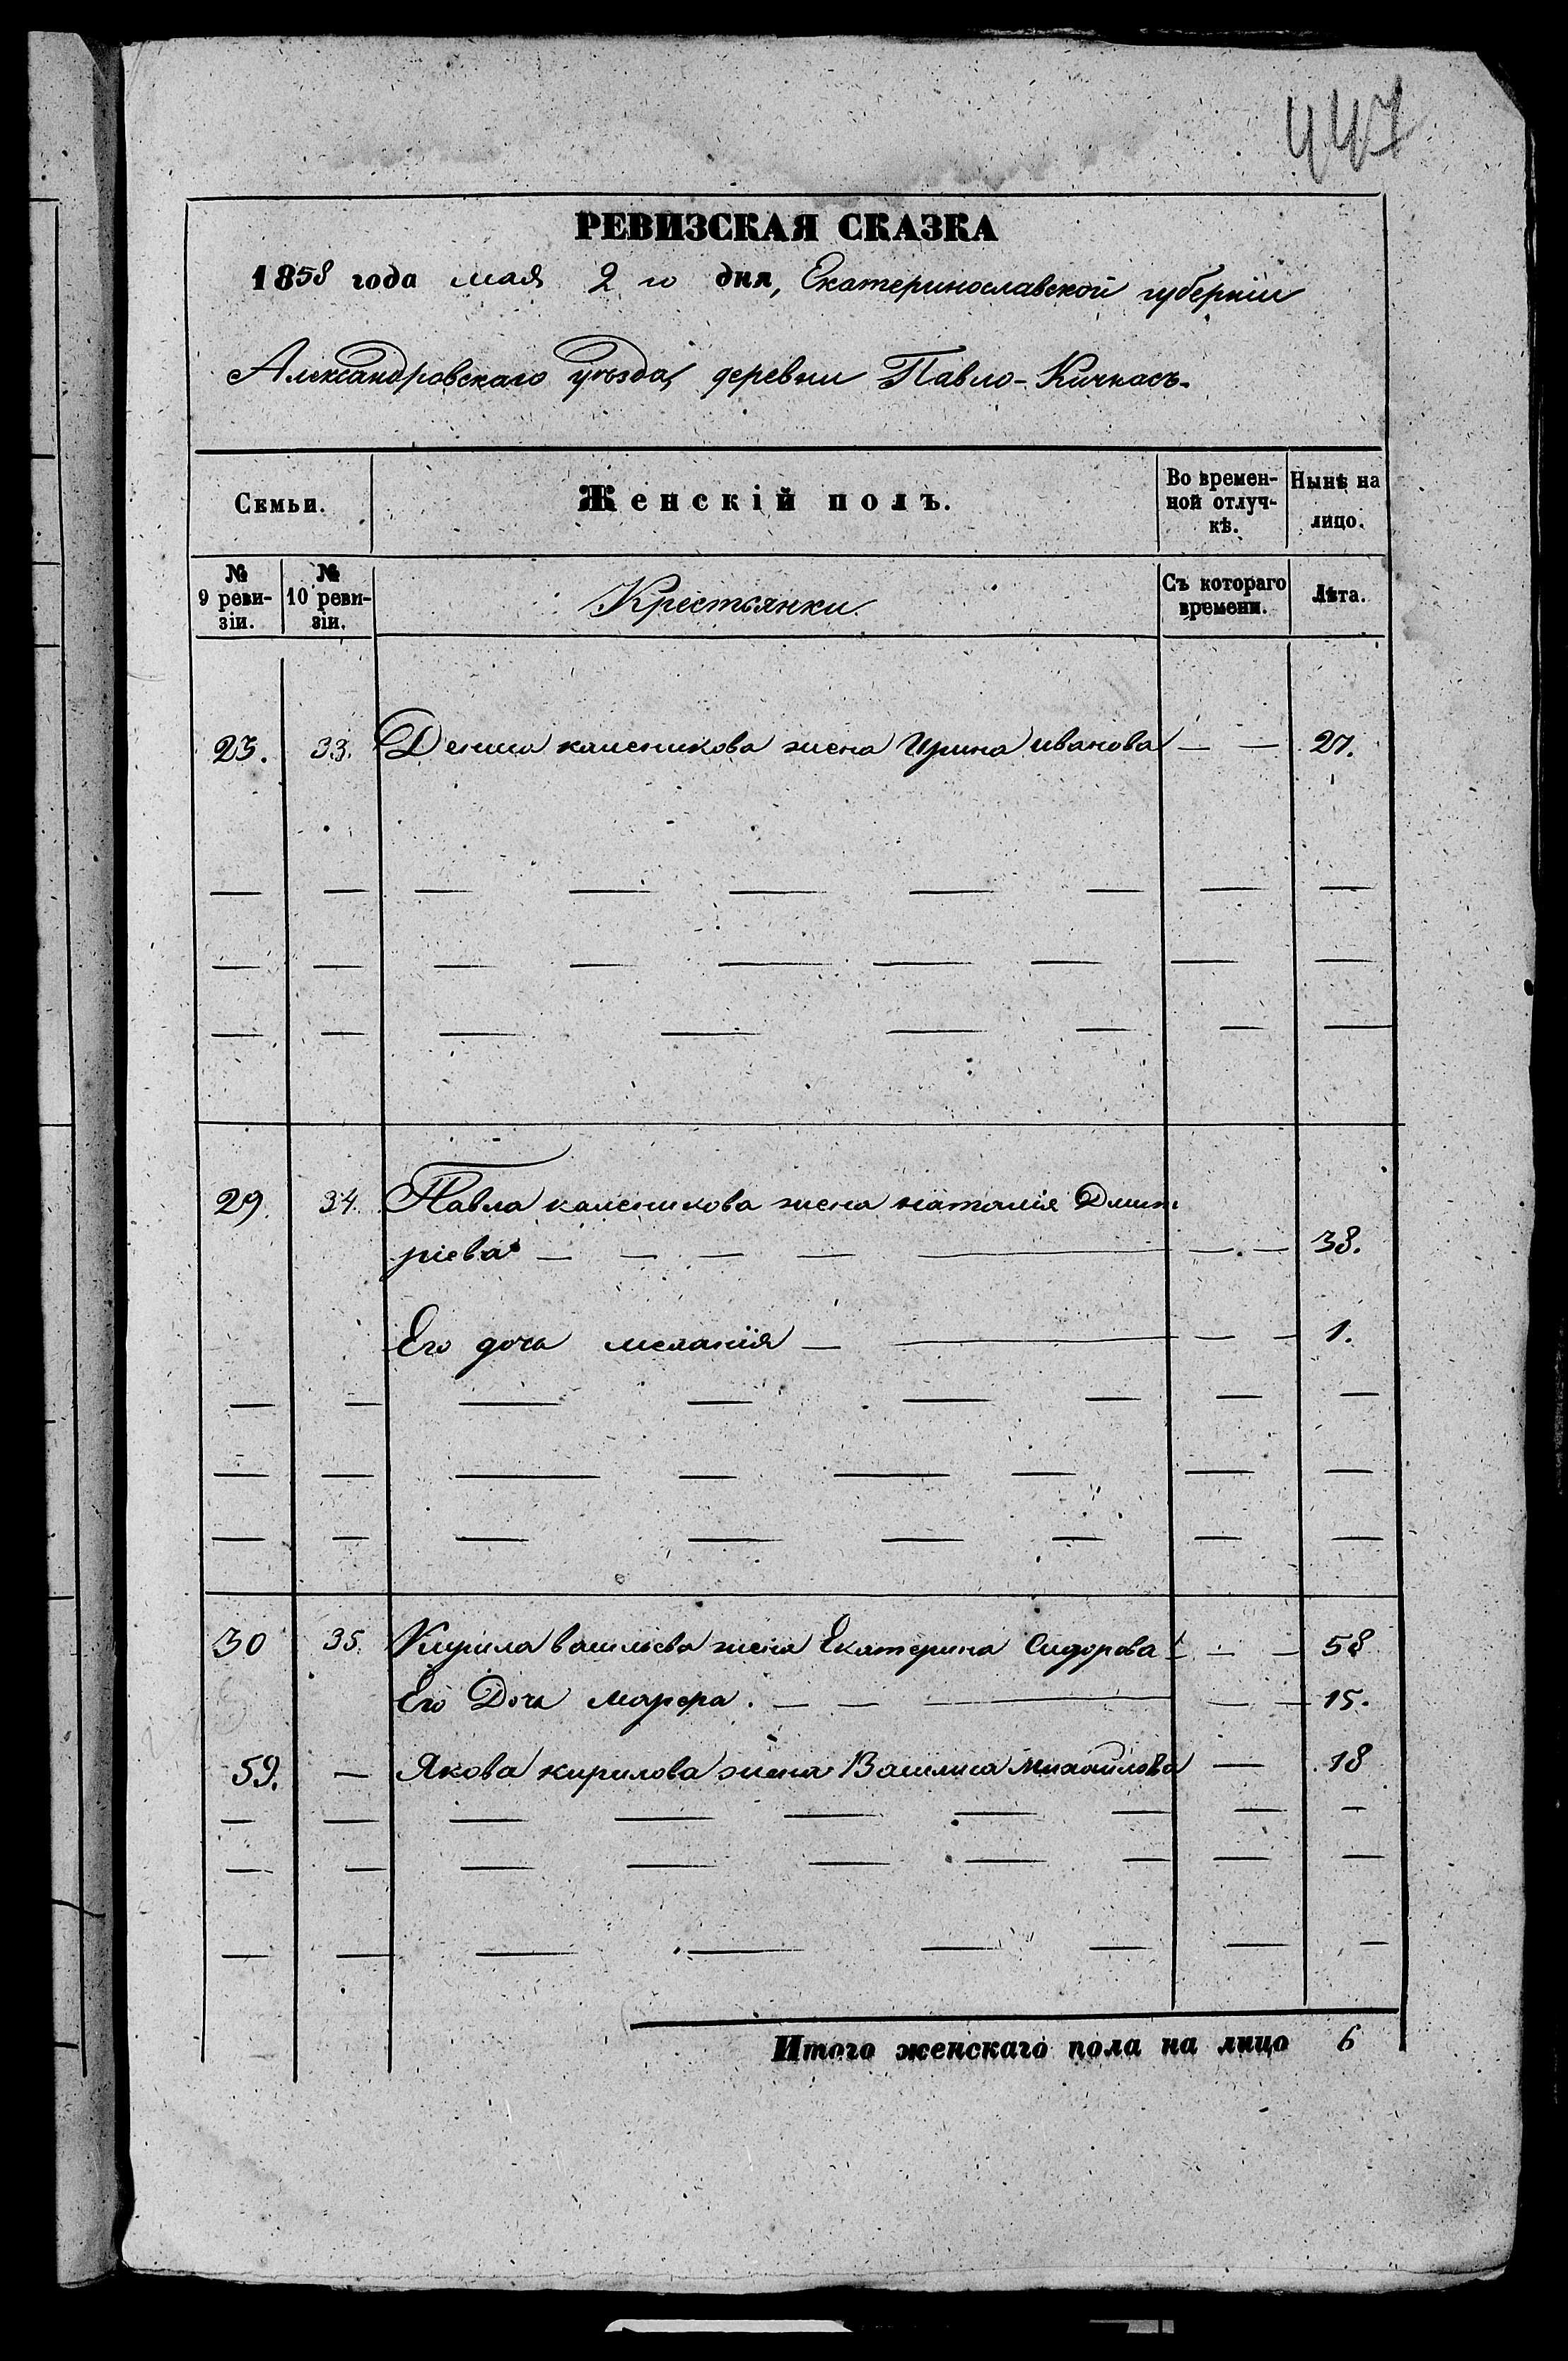 447
РЕВИЗСКАЯ СКАЗКА
1858 года мая 2 го дня, Екатеринославской губерніи
Александровскаго уѣзда, деревни Павло-Кичкасъ.
Семьи. Женскій полъ. Во времен- Нынѣ на
ной отлуч- лицо.
кѣ.
№ № Крестьянки Съ котораго Лѣта.
9 реви- 10 реви- времени.
зіи. зіи.
23. 33. Дениса каленикова жена Ирина иванова — — 27.
29. 34. Павла каленикова жена наталія Дмит
ріева — — — — — — 38.
Его дочь меланія — — — — 1.
30 35. Кирила васильева жена Екатерина Сидорова — — 58
Его Дочь Марфра. — — — — — 15.
59. — Якова кирилова жена Василиса Михайлова — 18
Итого женскаго пола на лицо 6